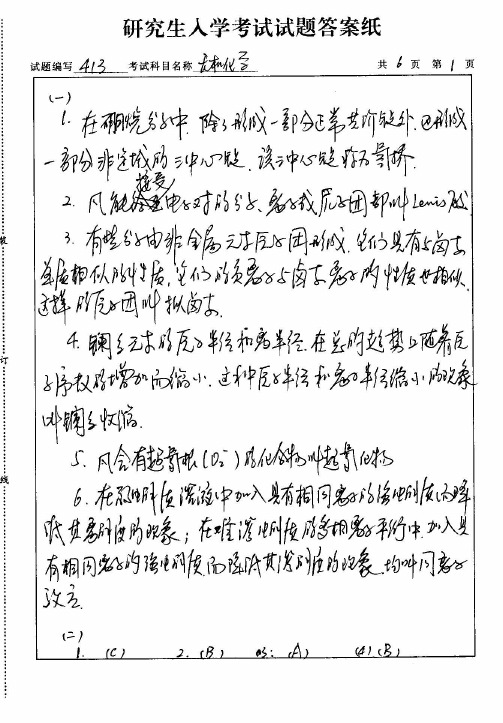 研究生入学考试试题答案纸
试题编写 413 考试科目名称 无机化学 共 6 页 第 1 页
(一)
1. 在硼烷分子中, 除了形成一部分正常共价键外, 还形成
一部分非定域的三中心键. 该三中心键称为氢桥.
接受
2. 凡能电子对的分子、离子或原子团都叫Lewis酸
3. 有些分子由非金属元素原子团形成, 它们具有与卤素
单质相似的性质, 它们的负离子与卤素离子的性质也相似.
这样的原子团叫拟卤素.
4. 镧系元素的原子半径和离子半径, 在总的趋势上随着原
子序数的增加而缩小. 这种原子半径和离子半径缩小的现象
叫镧系收缩.
5. 凡含有超氧根(O₂⁻)的化合物叫超氧化物
6. 在弱电解质溶液中加入具有相同离子的强电解质而降
低其离解度的现象; 在难溶电解质的多相离子平衡中, 加入具
有相同离子的强电解质而降低其溶解度的现象, 均叫同离子
效应.
(二)
1. (C) 2. (B) 3. (A) (4) (B)
装
订
线